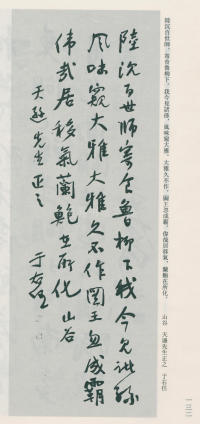 陸沉百世師，寄食魯柳下。我今見諸孫，風味窺大雅。大雅久不作，圖王忽成霸。偉哉居移氣，蘭鮑在所化。 山谷 天遜先生正之 于右任
陸沈百世師寄食魯柳下我今見諸孫
風味窺大雅大雅久不作圖王忽成霸
偉哉居移氣蘭鮑在所化山谷
天遜先生正之
于右任